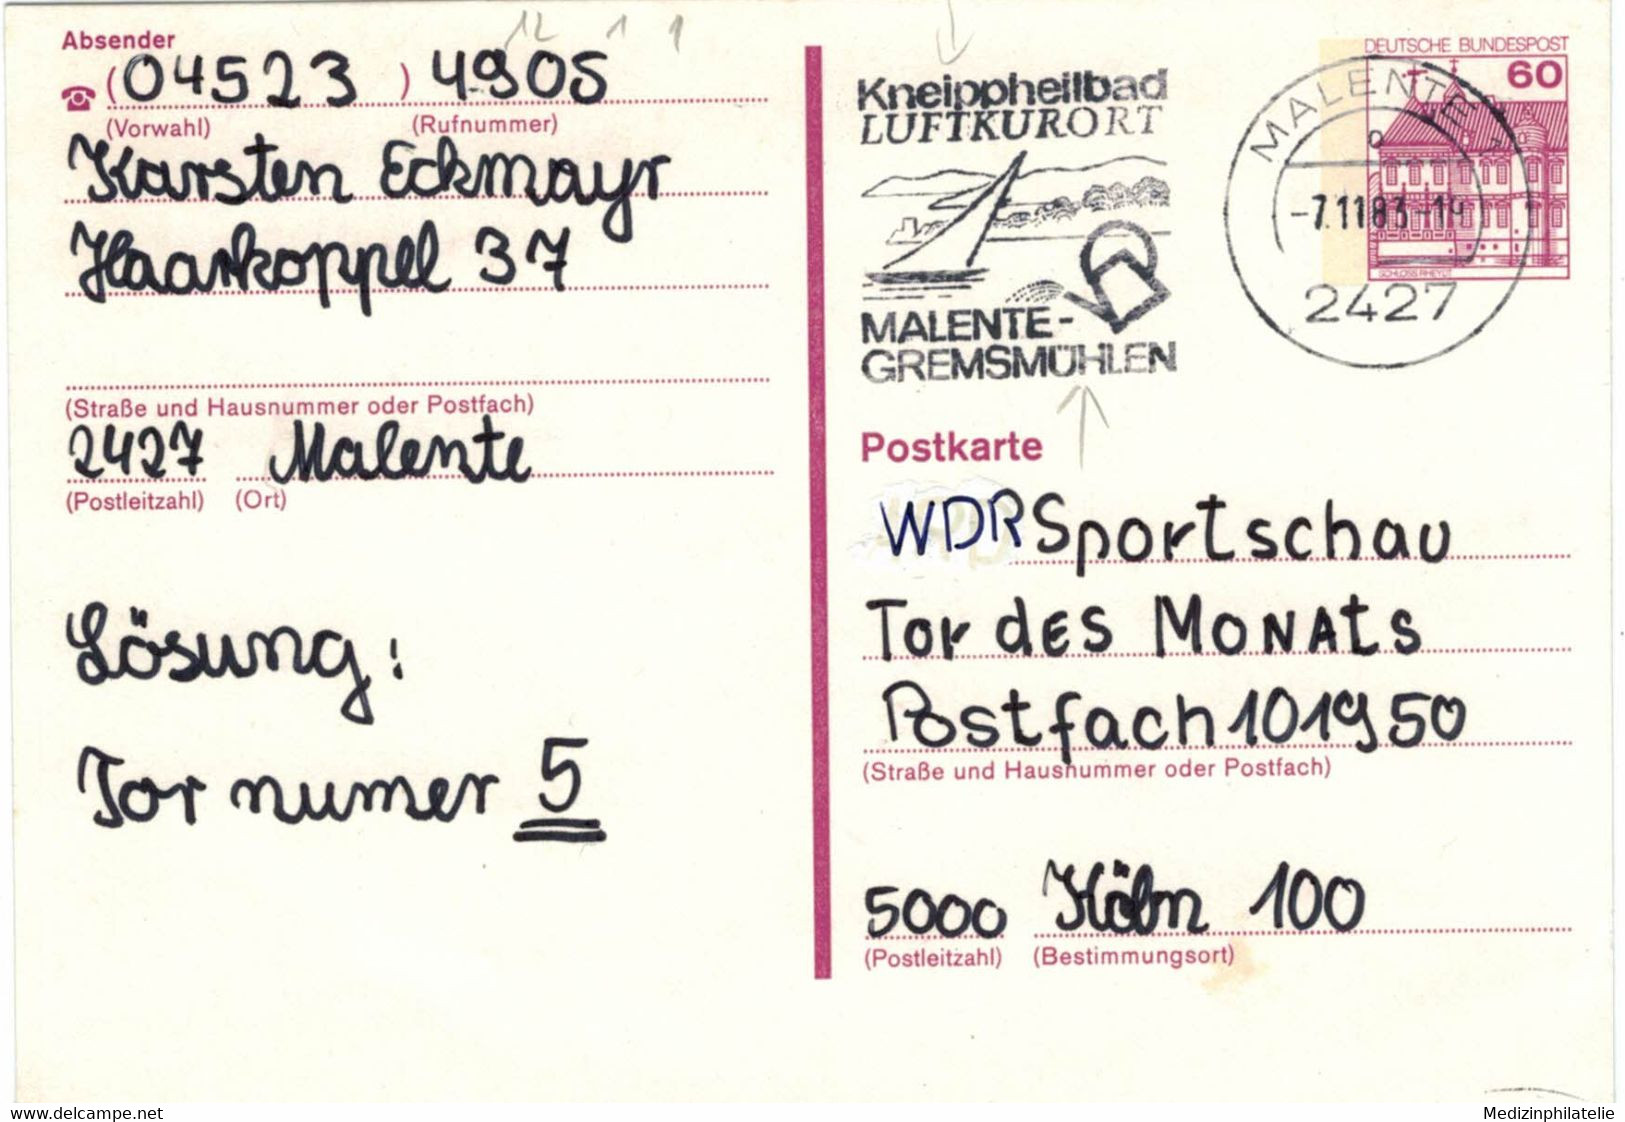 Absender
(04523) 4905
(Vorwahl) (Rufnummer)
Karsten Eckmayr
Haarkoppel 37
(Straße und Hausnummer oder Postfach)
2427 Malente
(Postleitzahl) (Ort)
Lösung:
Tor numer 5
12 1 1
Kneippheilbad
LUFTKURORT
MALENTE-
GREMSMÜHLEN
MALENTE
-7.11.83-19
2427
DEUTSCHE BUNDESPOST
60
SCHLOSS RHEYDT
Postkarte
WDR Sportschau
Tor dES MONAtS
Postfach 101950
(Straße und Hausnummer oder Postfach)
5000 Köln 100
(Postleitzahl) (Bestimmungsort)
www.delcampe.net
Medizinphilatelie